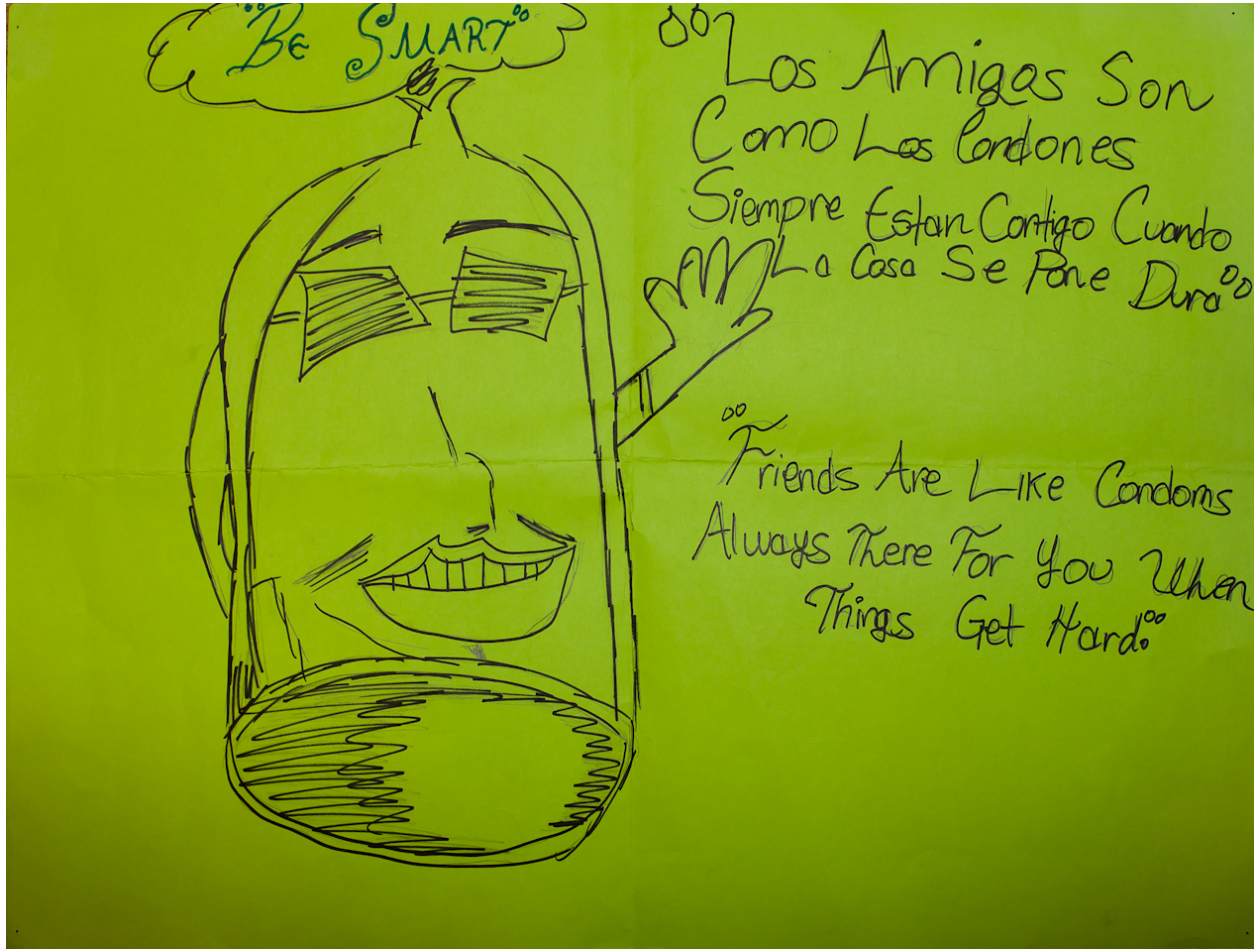 "Be Smart"
"Los Amigos Son
Como Los Condones
Siempre Estan Contigo Cuando
La Cosa Se Pone Dura"
"Friends Are Like Condoms
Always There For You When
Things Get Hard."